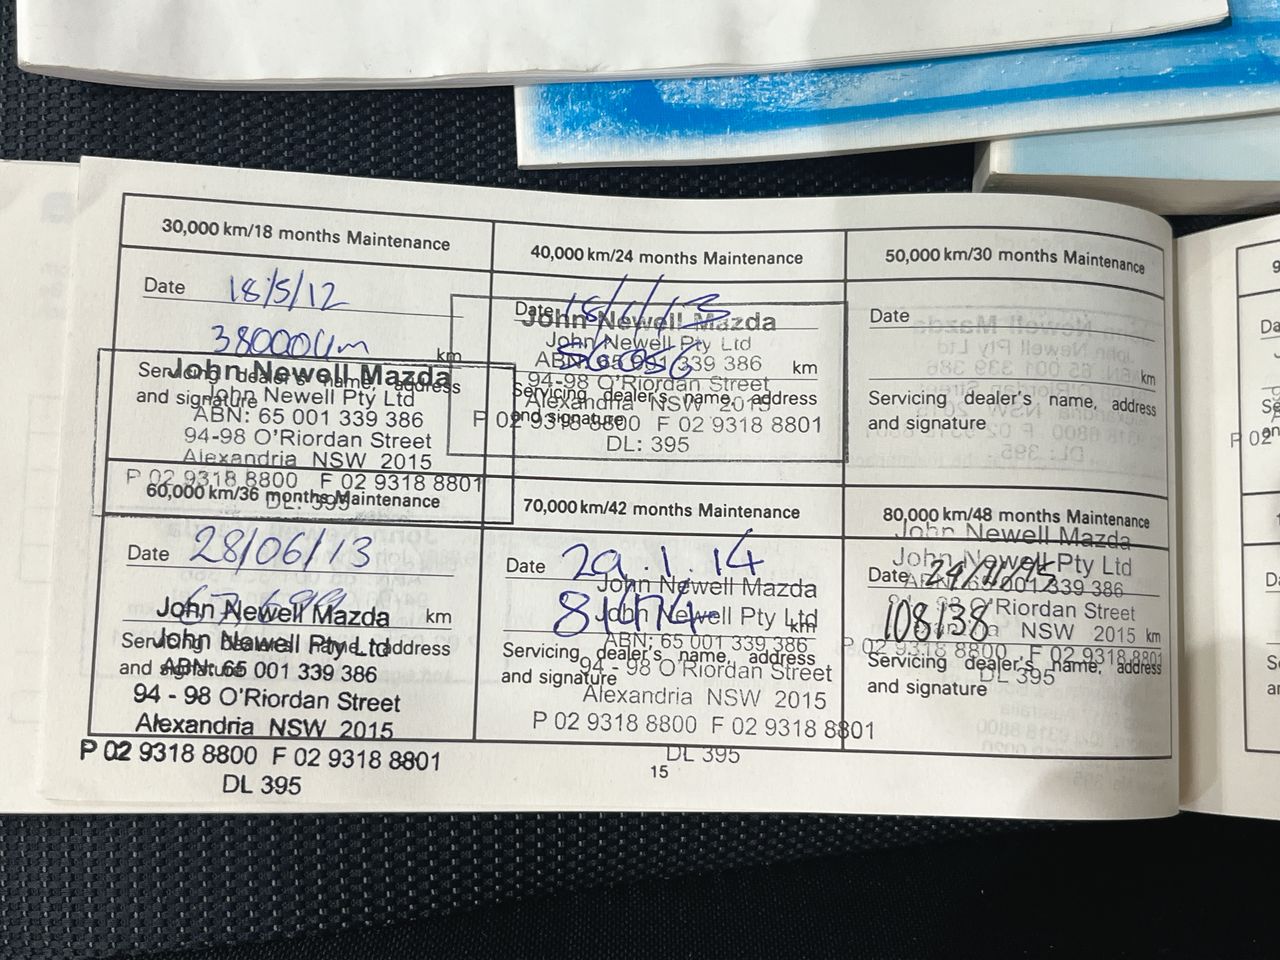 30,000 km/18 months Maintenance
Date 18/5/12
38000km km
Servicing dealer's name, address
and signature
John Newell Mazda
John Newell Pty Ltd
ABN: 65 001 339 386
94-98 O'Riordan Street
Alexandria NSW 2015
P 02 9318 8800 F 02 9318 8801
DL: 395
40,000 km/24 months Maintenance
Date
km
Servicing dealer's name, address
and signature
John Newell Mazda
John Newell Pty Ltd
ABN: 65 001 339 386
94-98 O'Riordan Street
Alexandria NSW 2015
P 02 9318 8800 F 02 9318 8801
DL: 395
50,000 km/30 months Maintenance
Date
km
Servicing dealer's name, address
and signature
60,000 km/36 months Maintenance
Date 28/06/13
km
Servicing dealer's name, address
and signature
John Newell Mazda
John Newell Pty Ltd
ABN: 65 001 339 386
94 - 98 O'Riordan Street
Alexandria NSW 2015
P 02 9318 8800 F 02 9318 8801
DL 395
70,000 km/42 months Maintenance
Date 29.1.14
km
Servicing dealer's name, address
and signature
John Newell Mazda
John Newell Pty Ltd
ABN: 65 001 339 386
94 - 98 O'Riordan Street
Alexandria NSW 2015
P 02 9318 8800 F 02 9318 8801
DL 395
80,000 km/48 months Maintenance
Date
108138 km
Servicing dealer's name, address
and signature
John Newell Mazda
John Newell Pty Ltd
O'Riordan Street
NSW 2015
P 02 9318 8800 F 02 9318 8801
DL 395
15